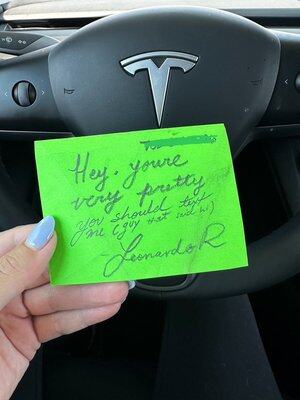 Hey. you're
very pretty
you should text
me (guy that said hi)
- Leonardo R